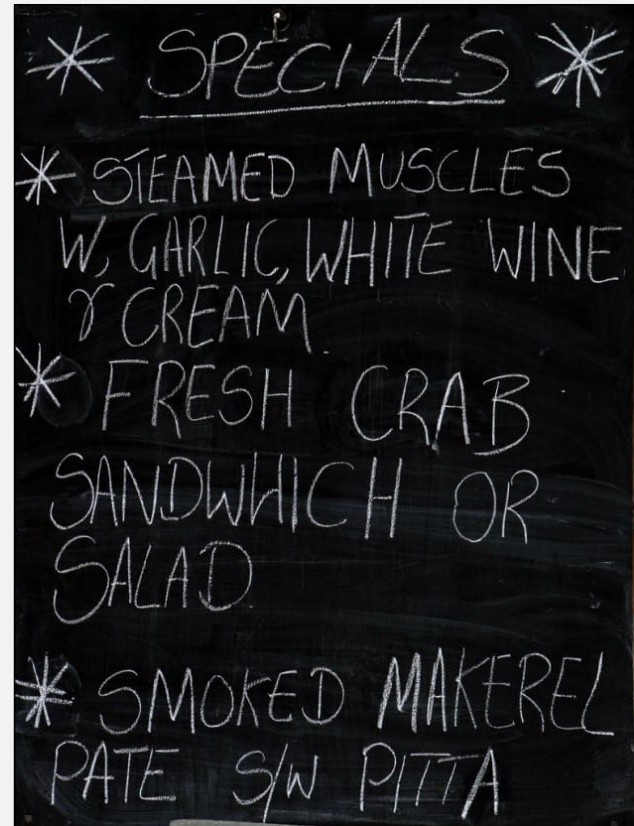 * SPECIALS *
* STEAMED MUSCLES
W, GARLIC, WHITE WINE
& CREAM.
* FRESH CRAB
SANDWHICH OR
SALAD
* SMOKED MAKEREL
PATE S/W PITTA